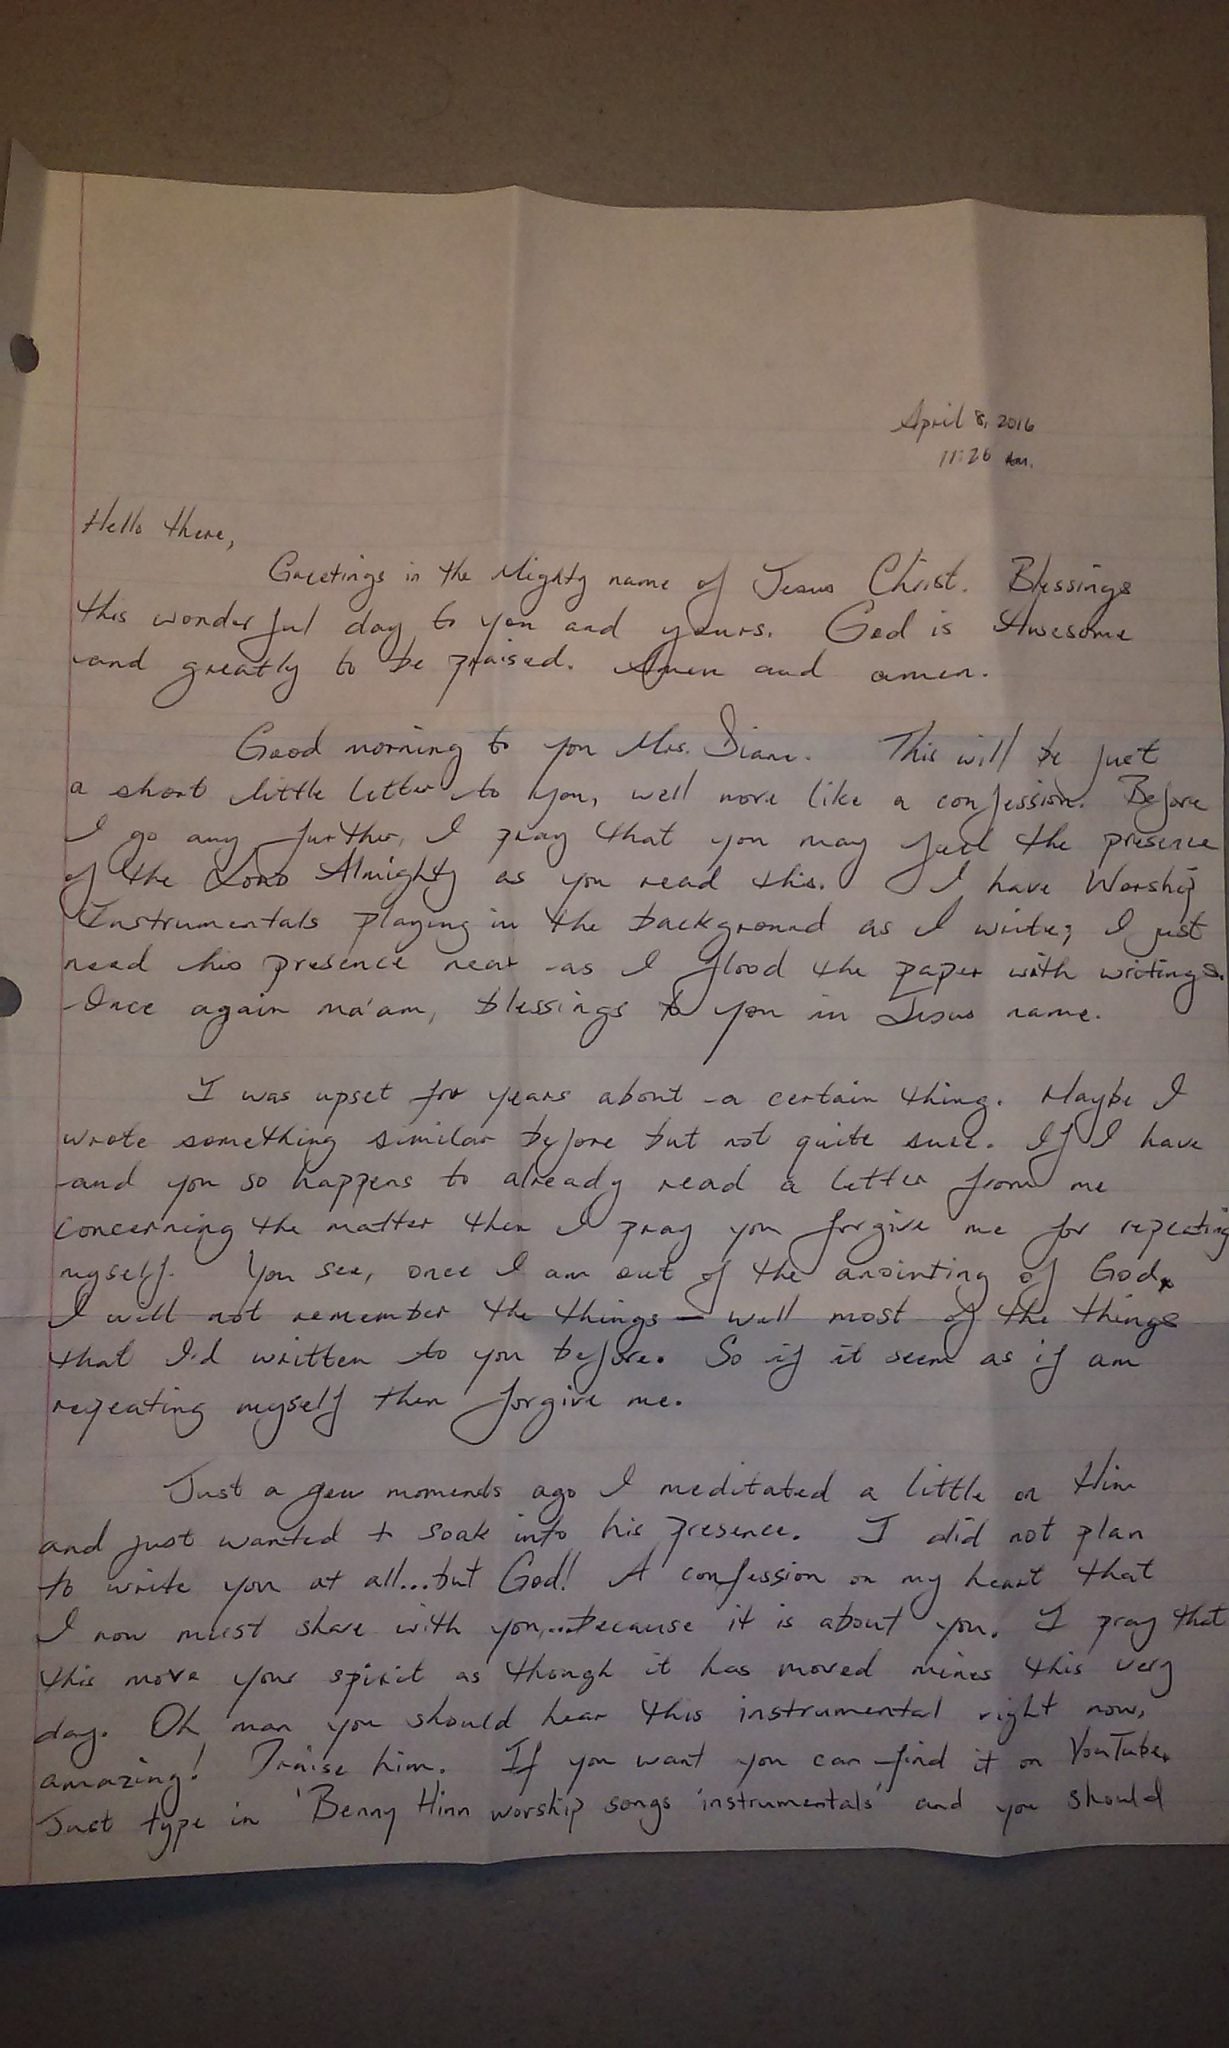 April 8, 2016
11:26 am.
Hello there,
Greetings in the Mighty name of Jesus Christ. Blessings
this wonderful day to you and yours. God is Awesome
and greatly to be praised. Amen and amen.
Good morning to you Mrs. Diane. This will be just
a short little letter to you, well more like a confession. Before
I go any further, I pray that you may feel the presence
of the Lord Almighty as you read this. I have Worship
Instrumentals playing in the background as I write; I just
need his presence near as I flood the paper with writings.
Once again ma'am, blessings to you in Jesus name.
I was upset for years about a certain thing. Maybe I
wrote something similar before but not quite sure. If I have
and you so happens to already read a letter from me
concerning the matter then I pray you forgive me for repeating
myself. You see, once I am out of the anointing of God,
I will not remember the things - well most of the things
that I'd written to you before. So if it seem as if am
repeating myself then forgive me.
Just a few moments ago I meditated a little on Him
and just wanted to soak into his presence. I did not plan
to write you at all...but God! A confession on my heart that
I now must share with you...because it is about you. I pray that
this move your spirit as though it has moved mines this very
day. Oh man you should hear this instrumental right now,
amazing! Praise him. If you want you can find it on YouTube.
Just type in 'Benny Hinn worship songs instrumentals' and you should